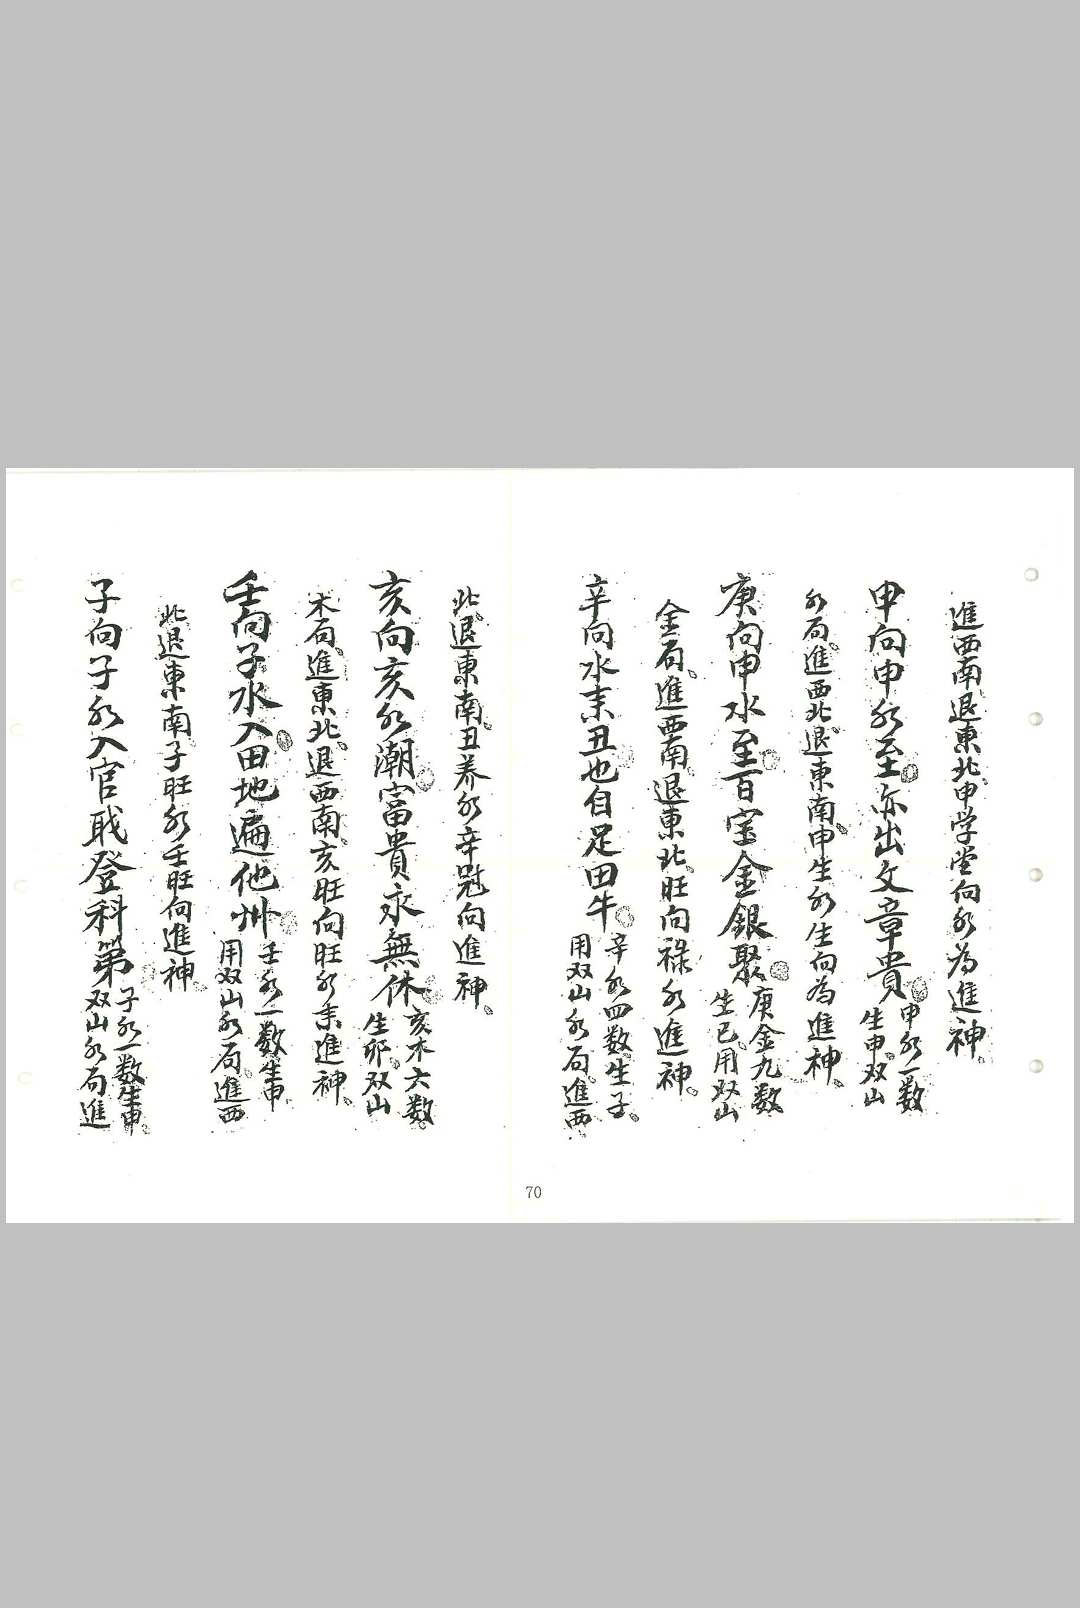 進西南退東北申学堂向水為進神
申向申水至亦出文章貴申水一数
生申双山
水局進西北退東南申生水生向為進神
庚向申水至百宝金銀聚庚金九数
生巳用双山
金局進西南退東北旺向祿水進神
辛向水来丑也自足田牛辛水四数生子
用双山水局進西
北退東南丑养水辛冠向進神
亥向亥水潮富貴永無休亥木六数
生卯双山
木局進東北退西南亥旺向旺水来進神
壬向子水入田地遍他州壬水一数生申
用双山水局進西
北退東南子旺水壬旺向進神
子向子水入官职登科第子水一数生申
双山水局進
70